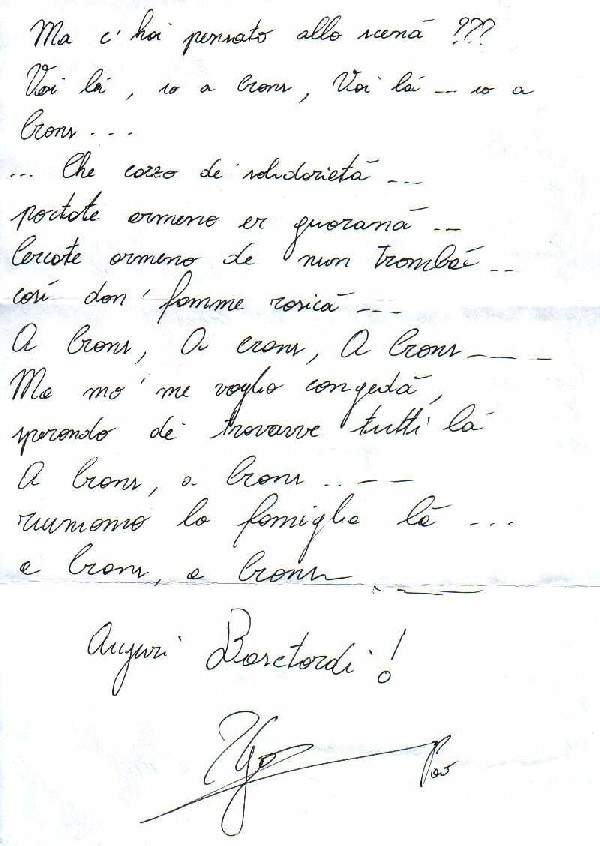 Ma c'hai pensato allo scenà ???
Voi là, io a Crans, Voi là -- io a
Crans...
... Che cazzo de solidarietà ---
portate armeno er guaranà --
Cercate armeno de nun trombà --
così don' famme rosicà ---
A Crans, A crans, A Crans ----
Ma mo' me voglio congedà,
sperando de trovavve tutti là
A Crans, a Crans ..--
riuniamo la famiglia là ...
a Crans, a Crans
Auguri Bastardi!